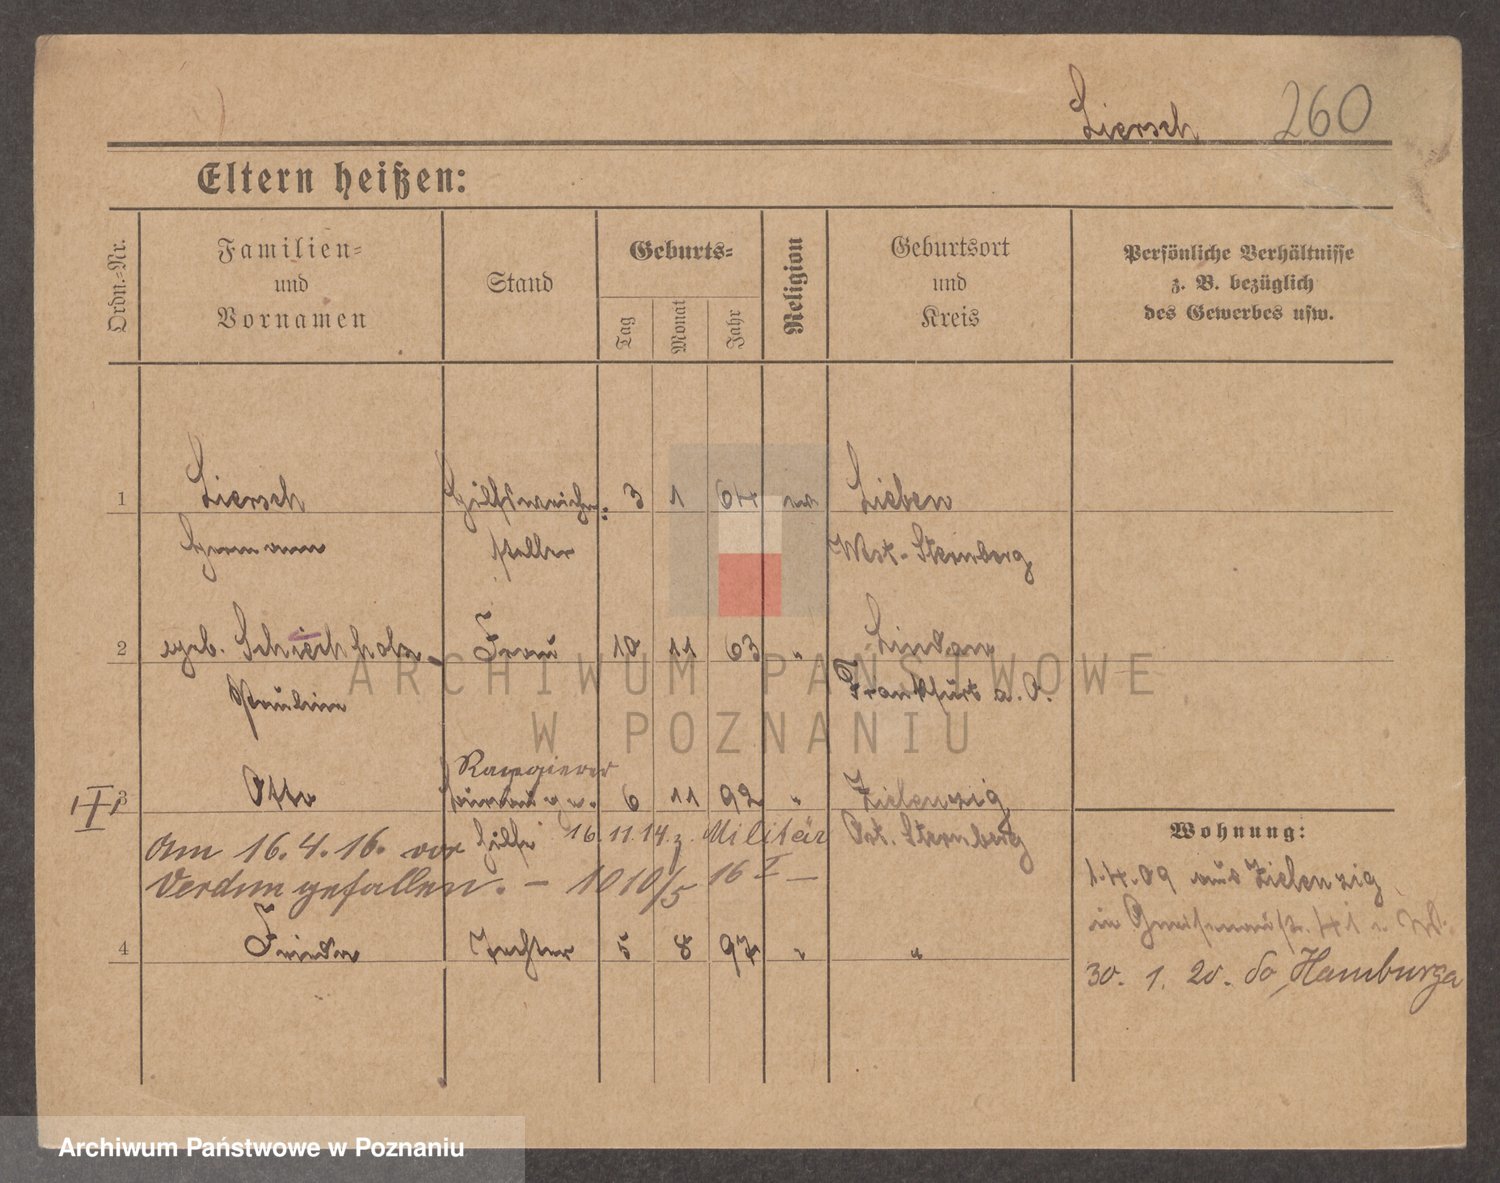 Liersch 260
Eltern heißen:
Ordn.=Nr.
Familien=
und
Vornamen
Stand
Geburts=
Tag
Monat
Jahr
Religion
Geburtsort
und
Kreis
Persönliche Verhältnisse
z. B. bezüglich
des Gewerbes usw.
1 Liersch Hilfsweichen= 3 1 64 ev Lieben
Hermann steller West-Sternberg
2 geb. Frau 10 11 63 " Lindow
Pauline Frankfurt a. O.
Rangierer
3 Otto 6 11 92 " Zielenzig
Hilfs 16. 11. 14. z. Militär Ost. Sternberg
Am 16. 4. 16. vor
Verdun gefallen. – 1010/5 16 I –
4 Frieda Tochter 5 8 97 " "
Wohnung:
1.4.09 aus Zielenzig
in Gneisenaustr. 41
30. 1. 20. do Hamburg
ARCHIWUM PAŃSTWOWE
W POZNANIU
Archiwum Państwowe w Poznaniu